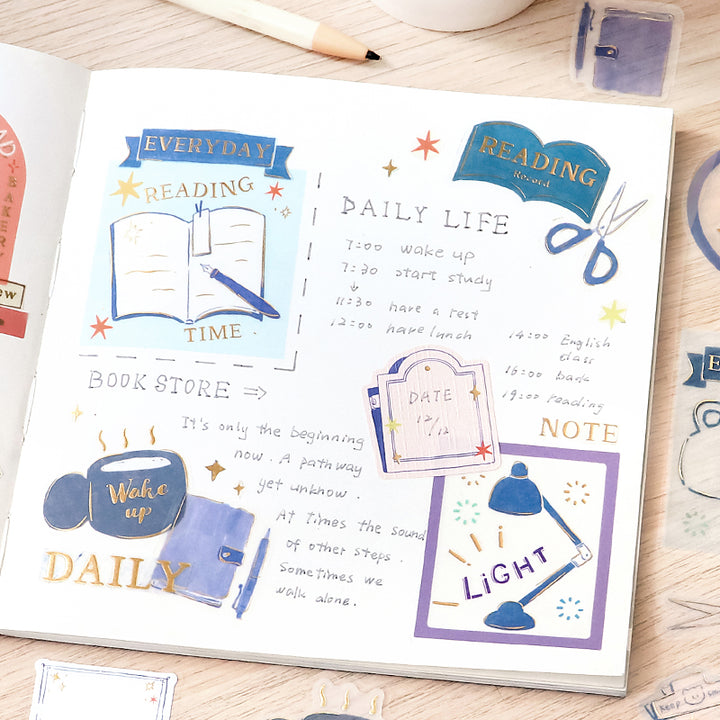 EVERYDAY
READING
TIME
READING
Record
DAILY LIFE
7:00 wake up
7:30 start study
11:30 have a rest
12:00 have lunch
14:00 English
class
16:00 back
19:00 reading
BOOK STORE ⇒
It's only the beginning
now. A pathway
yet unknow.
At times the sound
of other steps.
Sometimes we
walk alone.
DATE
12/12
NOTE
Wake
up
DAILY
LiGHT
BAKERY
Keep